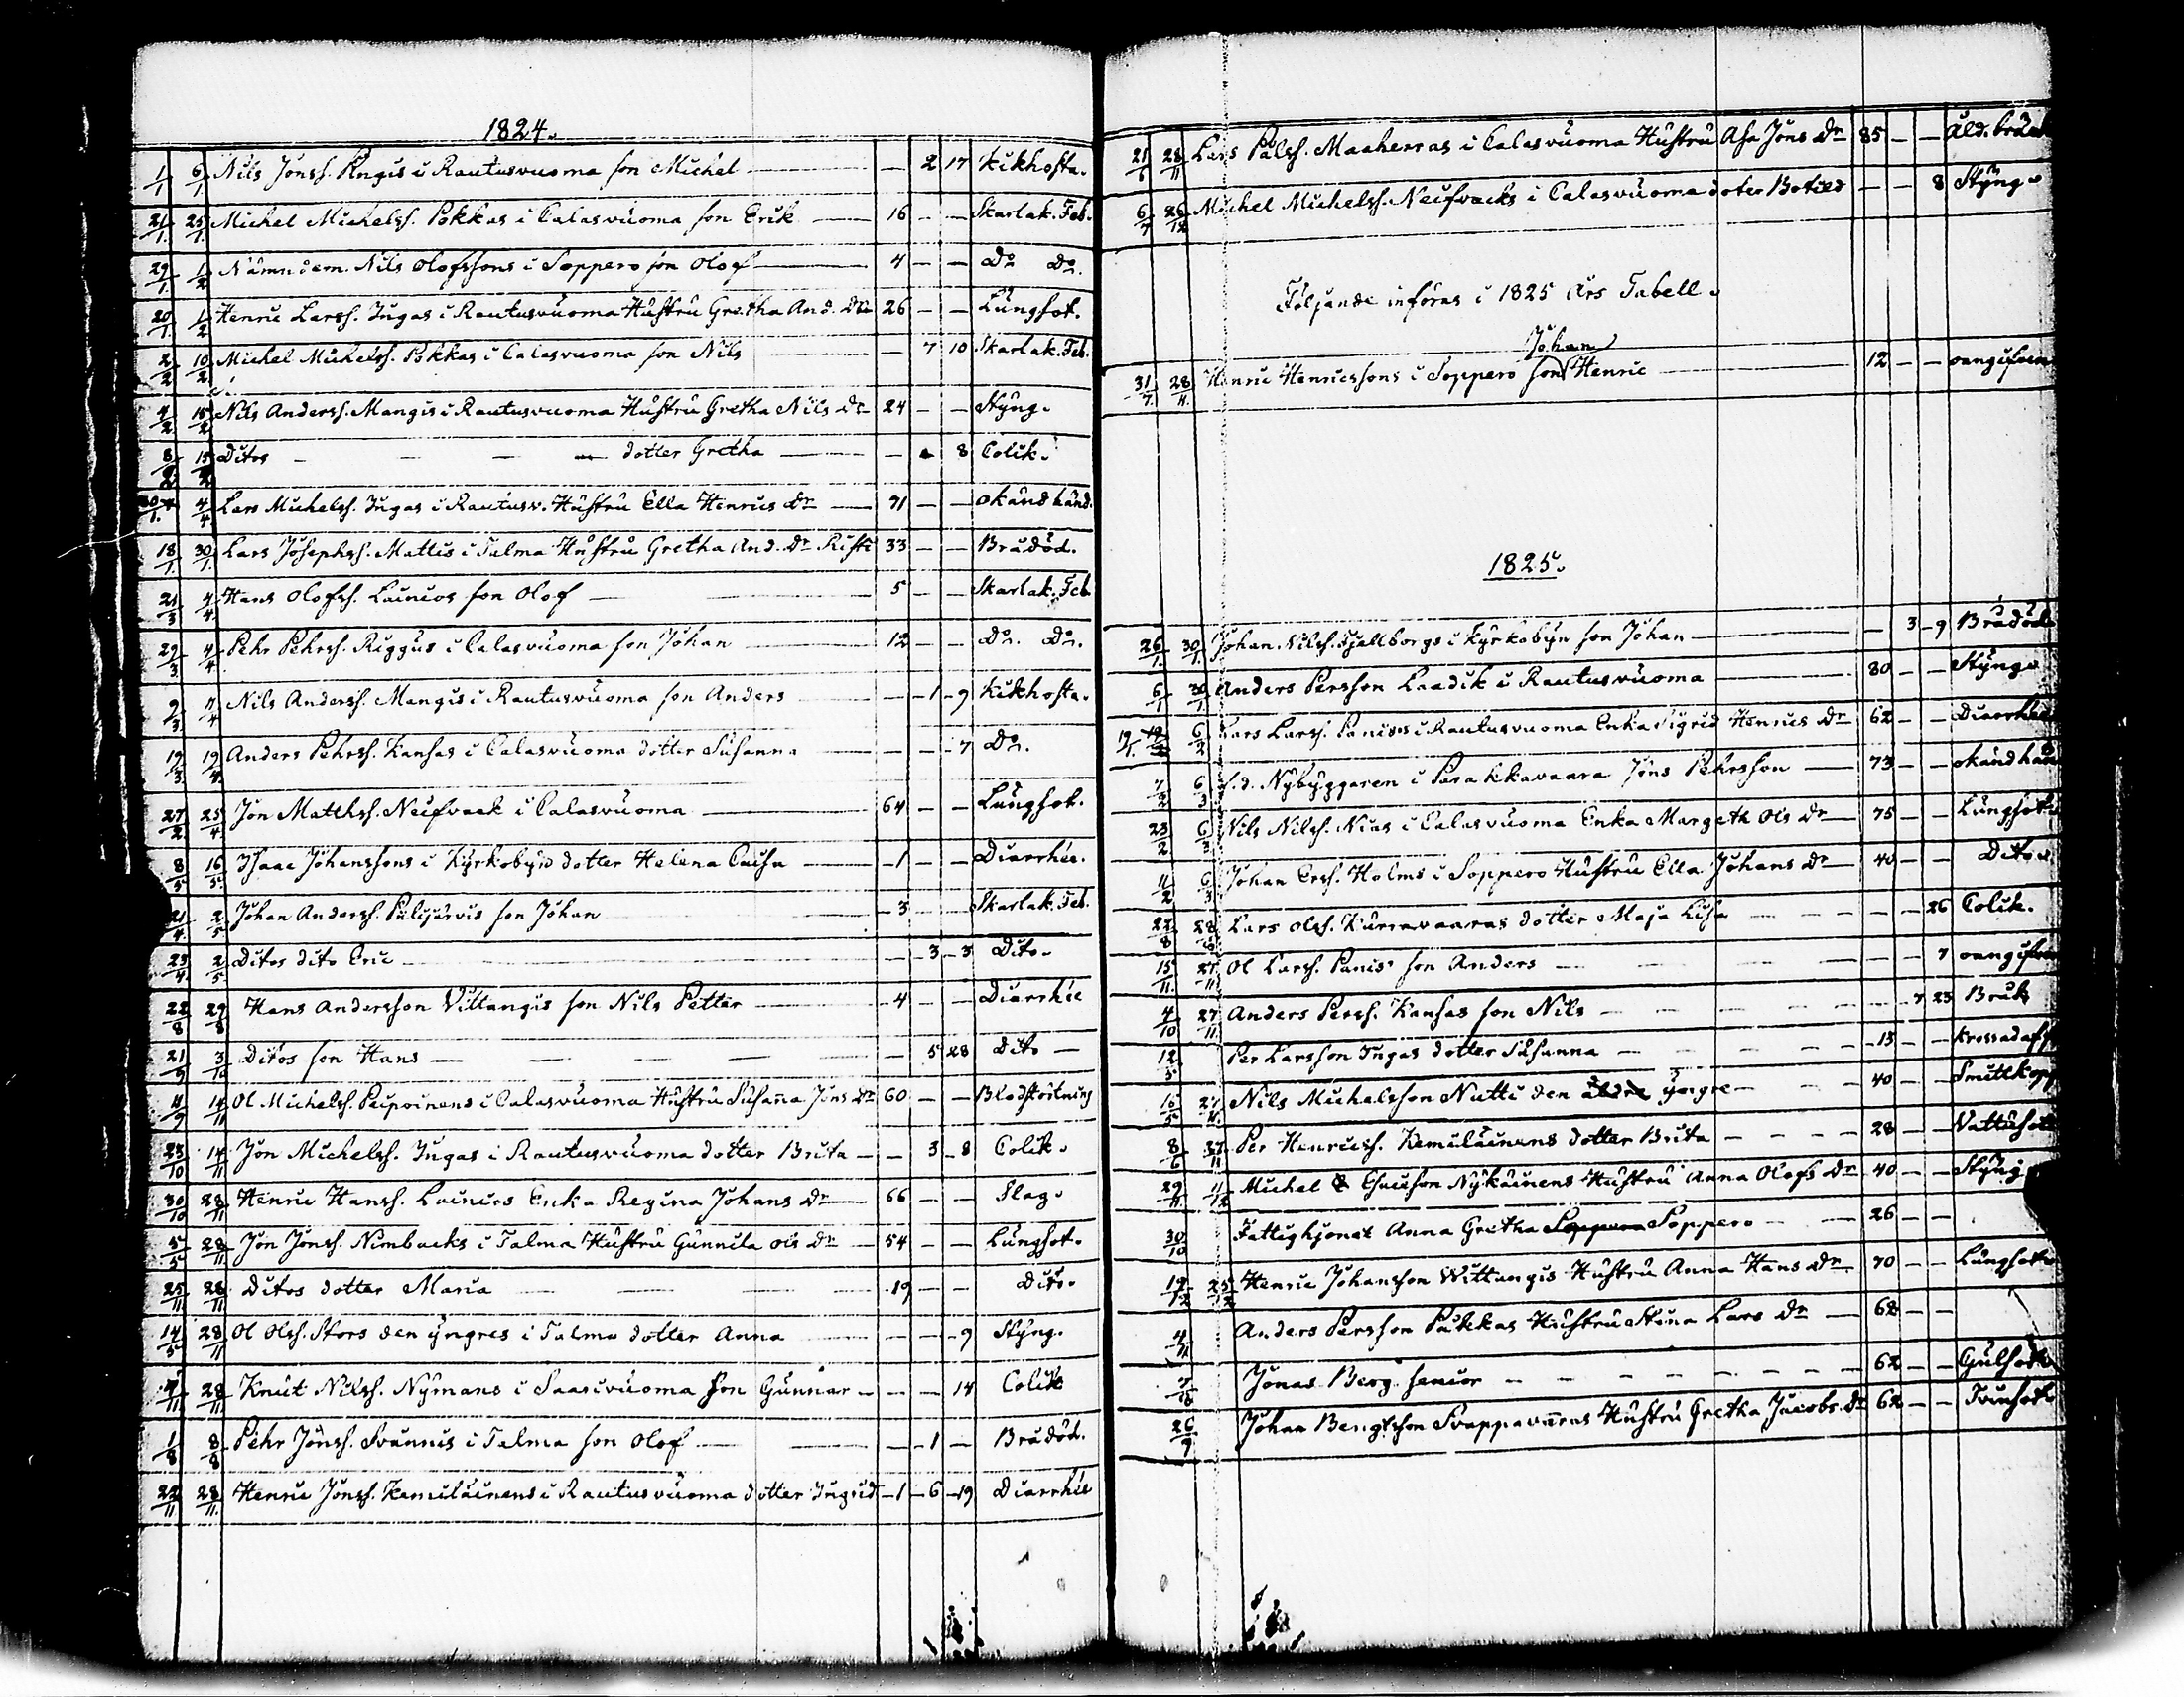 1824.
1/1 6/1 Nils Jonss. Pingis i Rautusvuoma son Michel — — 2 17 Kikhosta.
21/1. 25/1. Michel Michelss. Pokkas i Calasvuoma son Erik — 16 — — Skarlak. Feb.
29/1. 1/2 Nämndem. Nils Olofssons i Soppero son Olof — 4 — — Do Do.
20/1 1/2 Henric Larss. Ingas i Rautusvuoma Hustru Gretha And. Dr 26 — — Lungsot.
2/2 10/2 Michel Michelss. Pokkas i Calasvuoma son Nils — — 7 10 Skarlak. Feb.
4/2 15/2 Nils Anderss. Mangis i Rautusvuoma Hustru Gretha Nils Dr 24 — — Styng.
8/2 15/2 Ditos — — — dotter Gretha — — 8 Colik.
30/1. 4/4 Lars Michelss. Ingas i Rautusv. Hustru Ella Henrics Dr — 71 — — okänd händ.
18/1. 30/1. Lars Josephss. Mattis i Talma Hustru Gretha And. Dr Risti 33 — — Brådöd.
21/3 4/4 Hans Olofss. Lainios son Olof — 5 — — Skarlak. Feb.
29/3 4/4 Pehr Pehrss. Riggus i Calasvuoma son Johan — 12 — — Do. Do.
9/3 11/4 Nils Anderss. Mangis i Rautusvuoma son Anders — — 1 — 9 Kikhosta.
19/3 19/4 Anders Pehrss. Kansas i Calasvuoma dotter Susanna — — — 7 Do.
27/2 25/4 Jon Matthss. Neifvack i Calasvuoma — 64 — — Lungsot.
8/5 16/5 Isaac Johanssons i Kyrkobyn dotter Helena Caisa — 1 — — Diarrhée.
21/4. 2/5 Johan Anderss. Pälijärvis son Johan — 3 — — Skarlak. Feb.
23/4 2/5 Ditos dito Eric — — 3 — 3 Dito.
22/8 29/8 Hans Andersson Vittangis son Nils Petter — 4 — — Diarrhée
21/9 3/10 Ditos son Hans — — — — 5 28 Dito —
4/9 14/11 Ol Michelss. Peipoinens i Calasvuoma Hustru Susanna Jons Dr 60 — — Blodstörtning
23/10 14/11 Jon Michelss. Ingas i Rautusvuoma dotter Brita — — 3 — 8 Colik.
30/10 28/11 Henric Hanss. Lainios Enka Regina Johans Dr — 66 — — Slag.
5/5 28/11 Jon Jonss. Nimbacks i Talma Hustru Gunnila Ols Dr — 54 — — Lungsot.
25/11 28/11 Ditos dotter Maria — — — 19 — — Dito.
14/5 28/11 Ol Olss. Stors den yngres i Talma dotter Anna — — — 9 Styng.
4/11 28/11 Knut Nilss. Nymans i Saarivuoma son Gunnar — — — 14 Colik
1/8 8/8 Pehr Jönss. Svännis i Talma son Olof — — 1 — Brådöd.
22/11 28/11 Henric Jonss. Kemiläinens i Rautusvuoma dotter Ingrid — 1 — 6 — 19 Diarrhée
28/11 Lars Pålss. Maaherras i Calasvuoma Hustru Asa Jons Dr 85 — — Åld. bräck
6/7 26/12 Michel Michelss. Neifvacks i Calasvuoma doter — — 8 Styng.
Följande införas i 1825 års Tabell.
Johan
31/7. 28/11. Henric Henricssons i Soppero son Henric — 12 — — oangifven
1825.
26/1. 30/1. Johan Nilss. Fjellborgs i Kyrkobyn son Johan — — 3 — 9 Brådöd
6/1 30/1 Anders Persson Laadik i Rautusvuoma — 80 — — Styng.
19/1. 6/2 Lars Larss. Panisos i Rautusvuoma Enka Sigrid Henrics Dr 62 — — Diarrhée
7/2 6/3 f.d. Nybyggaren i Parakkavaara Jöns Pehrsson — 73 — — okänd händ
23/2 6/3 Nils Nilss. Nias i Calasvuoma Enka Margeth Ols Dr — 75 — — Lungsot
11/2 6/3 Johan Erss. Holms i Soppero Hustru Ella Johans Dr — 40 — — Dito.
22/8 28/8 Lars Olss. Kurravaaras dotter Maja Lisa — — — 26 Colik.
15/11. 27/11 Ol Larss. Panis son Anders — — — 7 oangifven
4/10 27/11. Anders Perss. Kansas son Nils — — — 7 23 Bråk
12/5 Per Larsson Ingas dotter Susanna — — 13 — —
16/5 27/11. Nils Michelsson Nutti den äldre yngre — — 40 — —
8/6 27/11 Per Henricss. Kemiläinens dotter Brita — — — 28 — — Vattusot
29/11. 11/12 Michel Esaison Nykäinens Hustru Anna Olofs Dr 40 — — Styng
30/10 Fattighjonet Anna Gretha Soppero Soppero — 26 — —
19/12 25/12 Henric Johansson Wittangis Hustru Anna Hans Dr 70 — — Lungsot.
4/11 Anders Persson Hustru Stina Lars Dr — 68 — —
7/12 Jonas Berg senior — — — — 62 — — Gulsot
26/9 Johan Bengtson Svappavaras Hustru Gretha Jacobs Dr 62 — — Tvinsot